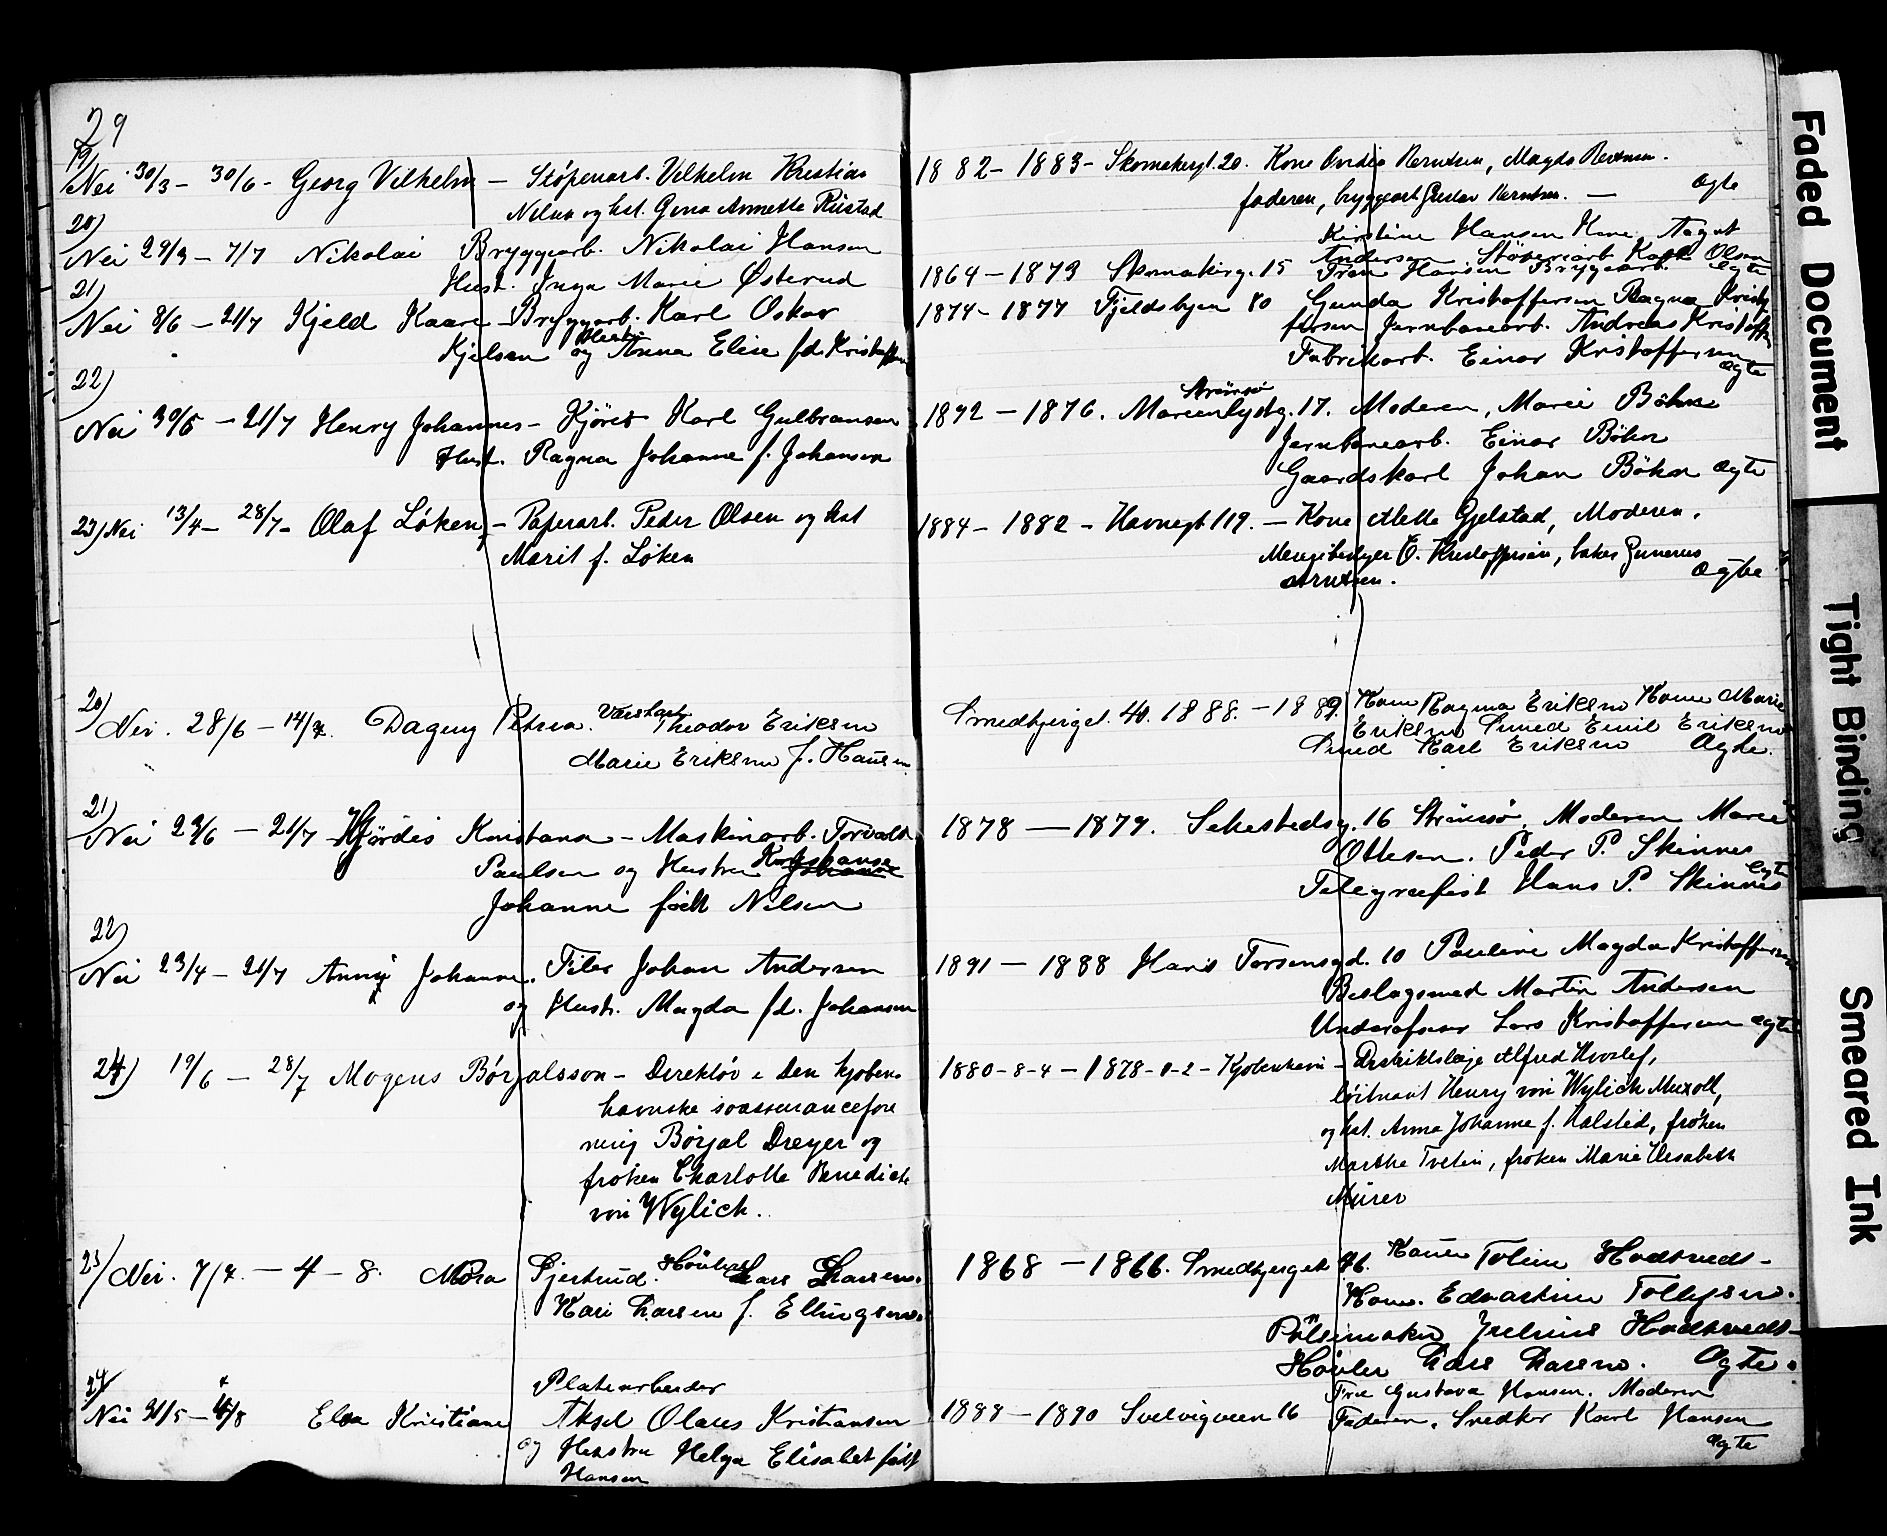 29
19/
Nei 30/3 - 30/6 - Georg Vilhelm - Støperiarb. Vilhelm Kristian
Nilsen og hst. Gina Annette Rustad
1882 - 1883 - Skomakergt. 20. Kone Berntsen, Magda Berntsen.
faderen, bryggearb. Gustav Berntsen. - Ægte
20)
Nei 29/3 - 7/7 Nikolai Bryggearb. Nikolai Hansen
Hust. Inga Marie Østerud
Kirstine Hansen Kone Aagot
Andersen Støveriarb. Karl Olsen
1864 - 1873 Skomakerg. 15 Fran Hansen Bryggearb. Ægte
21)
Nei 8/6 - 21/7 Kjeld Kaare - Bryggearb. Karl Oskar
Kjelsen og Hustr. Anna Elise fd. Kristoffersen
1874 - 1877 Fjeldsbyen 80 Gunda Kristoffersen Ragna Kristof
fersen Jernbanearb. Andreas Kristoffersen
Fabrikarb. Einar Kristoffersen
Ægte
22)
Nei 30/5 - 21/7 Henry Johannes - Kjører Karl Gulbransen
Hust. Ragna Johanne f. Johansen
Strømsø
1872 - 1876. Marienlystg. 17. Moderen, Marie Bøhn
Jernbanearb. Einar Bøhn
Gaardskarl Johan Bøhn Ægte
23) Nei 13/4 - 28/7 - Olaf Løken, - Paperarb. Peder Olsen og hst
Marit f. Løken
1884 - 1882 - Havnegt 119. - Kone Mette Gjelstad, Moderen,
O. Kristoffersen, baker Gunerus
Arntsen. Ægte
20)
Nei. 28/6 - 14/7. Dagny Petrea. Værkarb. Theodor Eriksen
Marie Eriksen f. Hansen
Smedbjerget. 40. 1888. - 1889. Kone Ragna Eriksen Kone Marie
Eriksen Smed Emil Eriksen
Smed Karl Eriksen Ægte.
21)
Nei 23/6 - 21/7 Hjørdis Kristiana - Maskinarb. Torvald
Paulsen og Hustru
Johanne født Nilsen
1878 - 1879. Sehestedsg. 16 Strømsø, Moderen Marie
Ottesen. Peder P. Skinnes
Telegrafist Hans P. Skinnes Ægte
22)
Nei 23/4 - 21/7 Anny Johanne. Filer Johan Andersen
og Hustr. Magda fd. Johansen
1891 - 1888 Hans Torsensgd. 10 Pauline Magda Kristoffersen
Beslagsmed Martin Andersen
Underofficer Lars Kristoffersen Ægte
24) 19/6 - 28/7 Mogens Børjalsson - Direktør i Den kjøben
havnske soassurancefore
ning Børjal Dreyer og
frøken Charlotte Benedicte
von Wylich.
1880-8-4 - 1878-1-2 - Kjøbenhavn - Distriktslæge Alfred Hvoslef,
løitnant Henry von Wylich Muxoll,
og hst. Anna Johanne f. Halsted, frøken
Marthe Tvetin, frøken Marie Elisabeth
Mürer
23/ Nei. 7/7. - 4 - 8. Mora Gjertrud. Høvler Lars Larsen.
Kari Larsen f. Ellingsen.
1868 - 1866. Smedbjerget 96. Konen Toline Hvedtveds -
Kone. Edvartine Tollefsen.
Pølsemaker Julius Hvedtveds -
Høvler Lars Larsen. Ægte.
24
Nei 21/5 - 4/8 Elsa Kristiane Platearbeider
Aksel Olaves Kristiansen
og Hustru Helga Elisabet født
Hansen
1889 - 1890 Svelvigveien 16 Frue Gustava Hansen. Moderen
Faderen. Snedker Karl Hansen
Ægte
Faded Document
Tight Binding
Smeared Ink